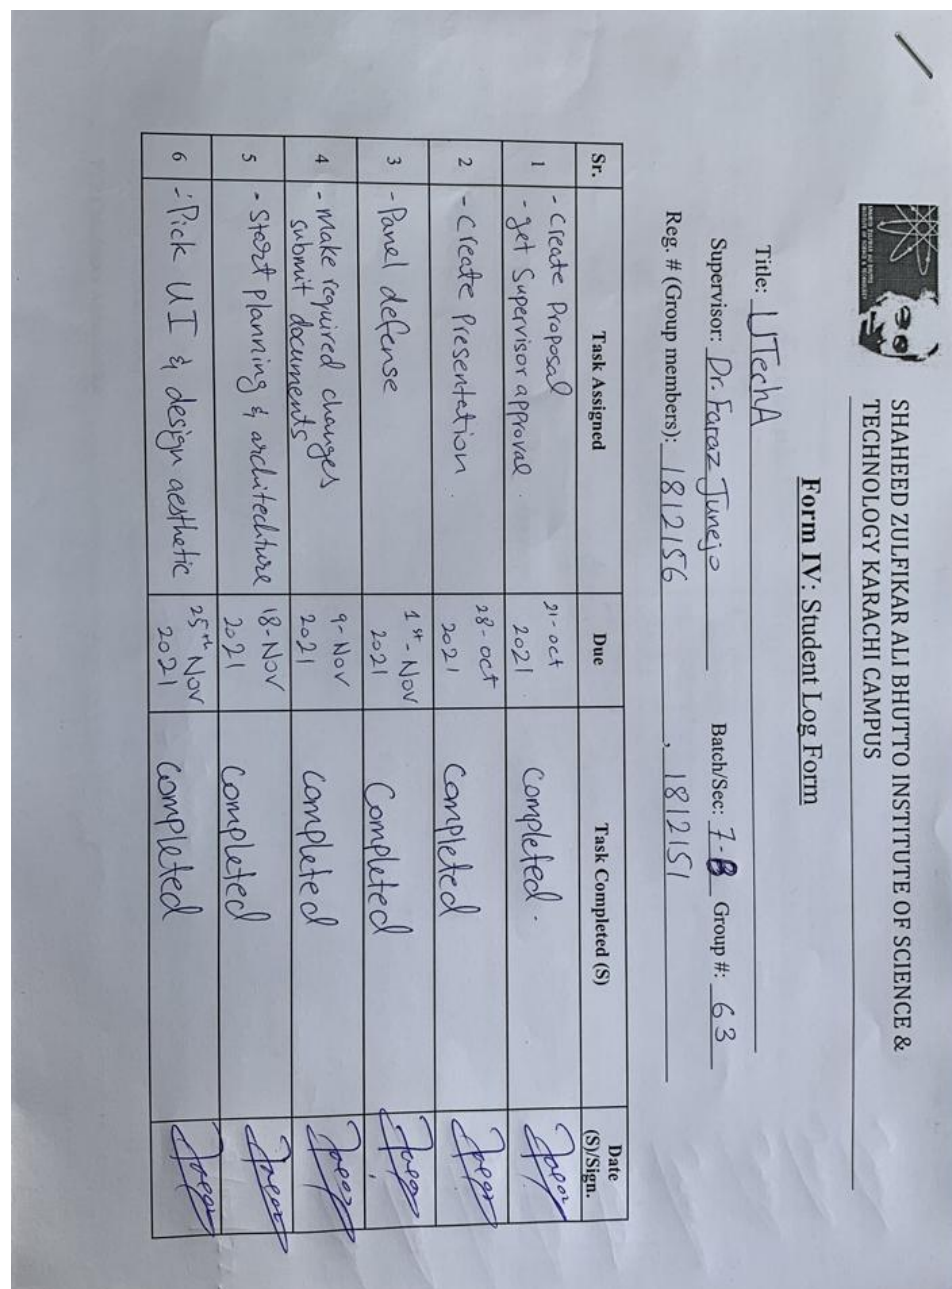 SHAHEED ZULFIKAR ALI BHUTTO INSTITUTE OF SCIENCE &
TECHNOLOGY KARACHI CAMPUS
Form IV: Student Log Form
Title: UTechA
Supervisor: Dr. Faraz Junejo Batch/Sec: 7-B Group #: 63
Reg. # (Group members): 1812156 , 1812151
Sr. Task Assigned Due Task Completed (S) Date
(S)/Sign.
1 - Create Proposal 21-oct Completed.
- get Supervisor approval. 2021.
2 - Create Presentation. 28-oct Completed
2021
3 - Panel defense 1st-Nov Completed
2021
4 - Make required changes 9-Nov Completed
submit documents 2021
5 - Start planning & architechture 18-Nov Completed
2021
6 - Pick UI & design aesthetic 25th Nov Completed
2021